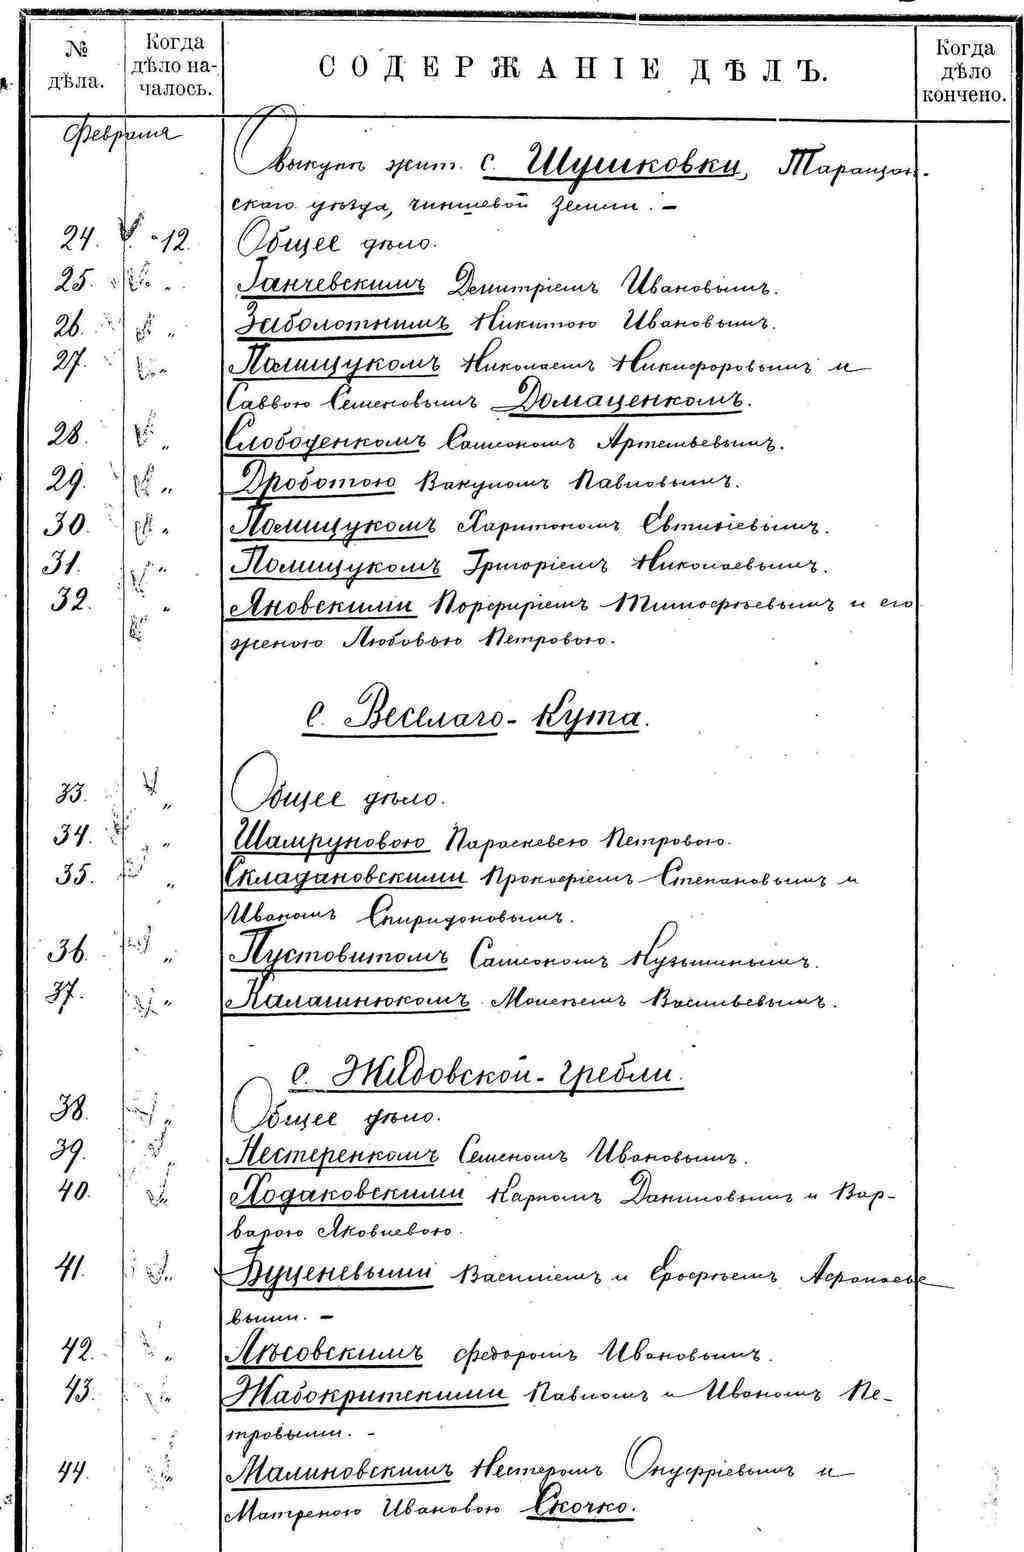 № дѣла.
Когда дѣло началось.
СОДЕРЖАНІЕ ДѢЛЪ.
Когда дѣло кончено.
Февраля
О выкупѣ жит. с. Шушковки, Таращан-
скаго уѣзда, чиншевой земли. —
24. 12. Общее дѣло.
25. „ Ганчевскимъ Димитріемъ Ивановымъ.
26. „ Заболотнимъ Никитою Ивановымъ.
27. „ Полищукомъ Николаемъ Никифоровымъ и
Саввою Семеновымъ Домаценкомъ.
28. „ Слободенкомъ Самсономъ Артемьевымъ.
29. „ Дроботою Вакуломъ Павловымъ.
30. „ Полищукомъ Харитономъ Евтихіевымъ.
31. „ Полищукомъ Григоріемъ Николаевымъ.
32. „ Яновскими Порфиріемъ Тимофѣевымъ и его
женою Любовью Петровою.
с. Веселаго-Кута.
33. „ Общее дѣло.
34. „ Шампруновою Параскевею Петровою.
35. „ Складановскими Прокофіемъ Степановымъ и
Иваномъ Спиридоновымъ.
36. „ Пустовитомъ Самсономъ Кузьминымъ.
37. „ Калашнюкомъ Моисѣемъ Васильевымъ.
с. Жидовской-гребли.
38. „ Общее дѣло.
39. „ Нестеренкомъ Семеномъ Ивановымъ.
40. „ Ходаковскими Карпомъ Даниловымъ и Вар-
варою Яковлевою.
41. „ Буценевыми Василіемъ и Ерофѣемъ Афанасье
выми. —
42. „ Лѣсовскимъ Федоромъ Ивановымъ.
43. „ Жабокритскими Павломъ и Иваномъ Пе-
тровыми. -
44. „ Малиновскимъ Нестеромъ Онуфріевымъ и
Матреною Ивановою Скочко.